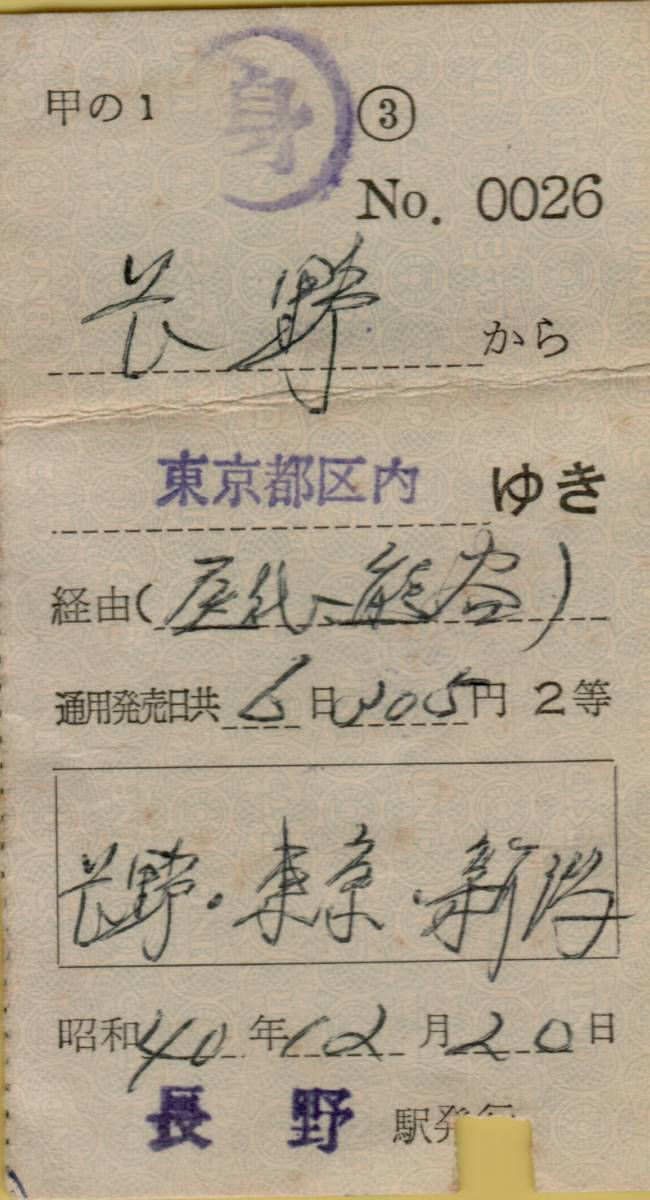 甲の1 身 ③
No. 0026
长野から
東京都区内 ゆき
経由(屋代、熊谷)
通用発売日共6日305円 2等
长野・東京・新
昭和40年12月20日
長野 駅発行